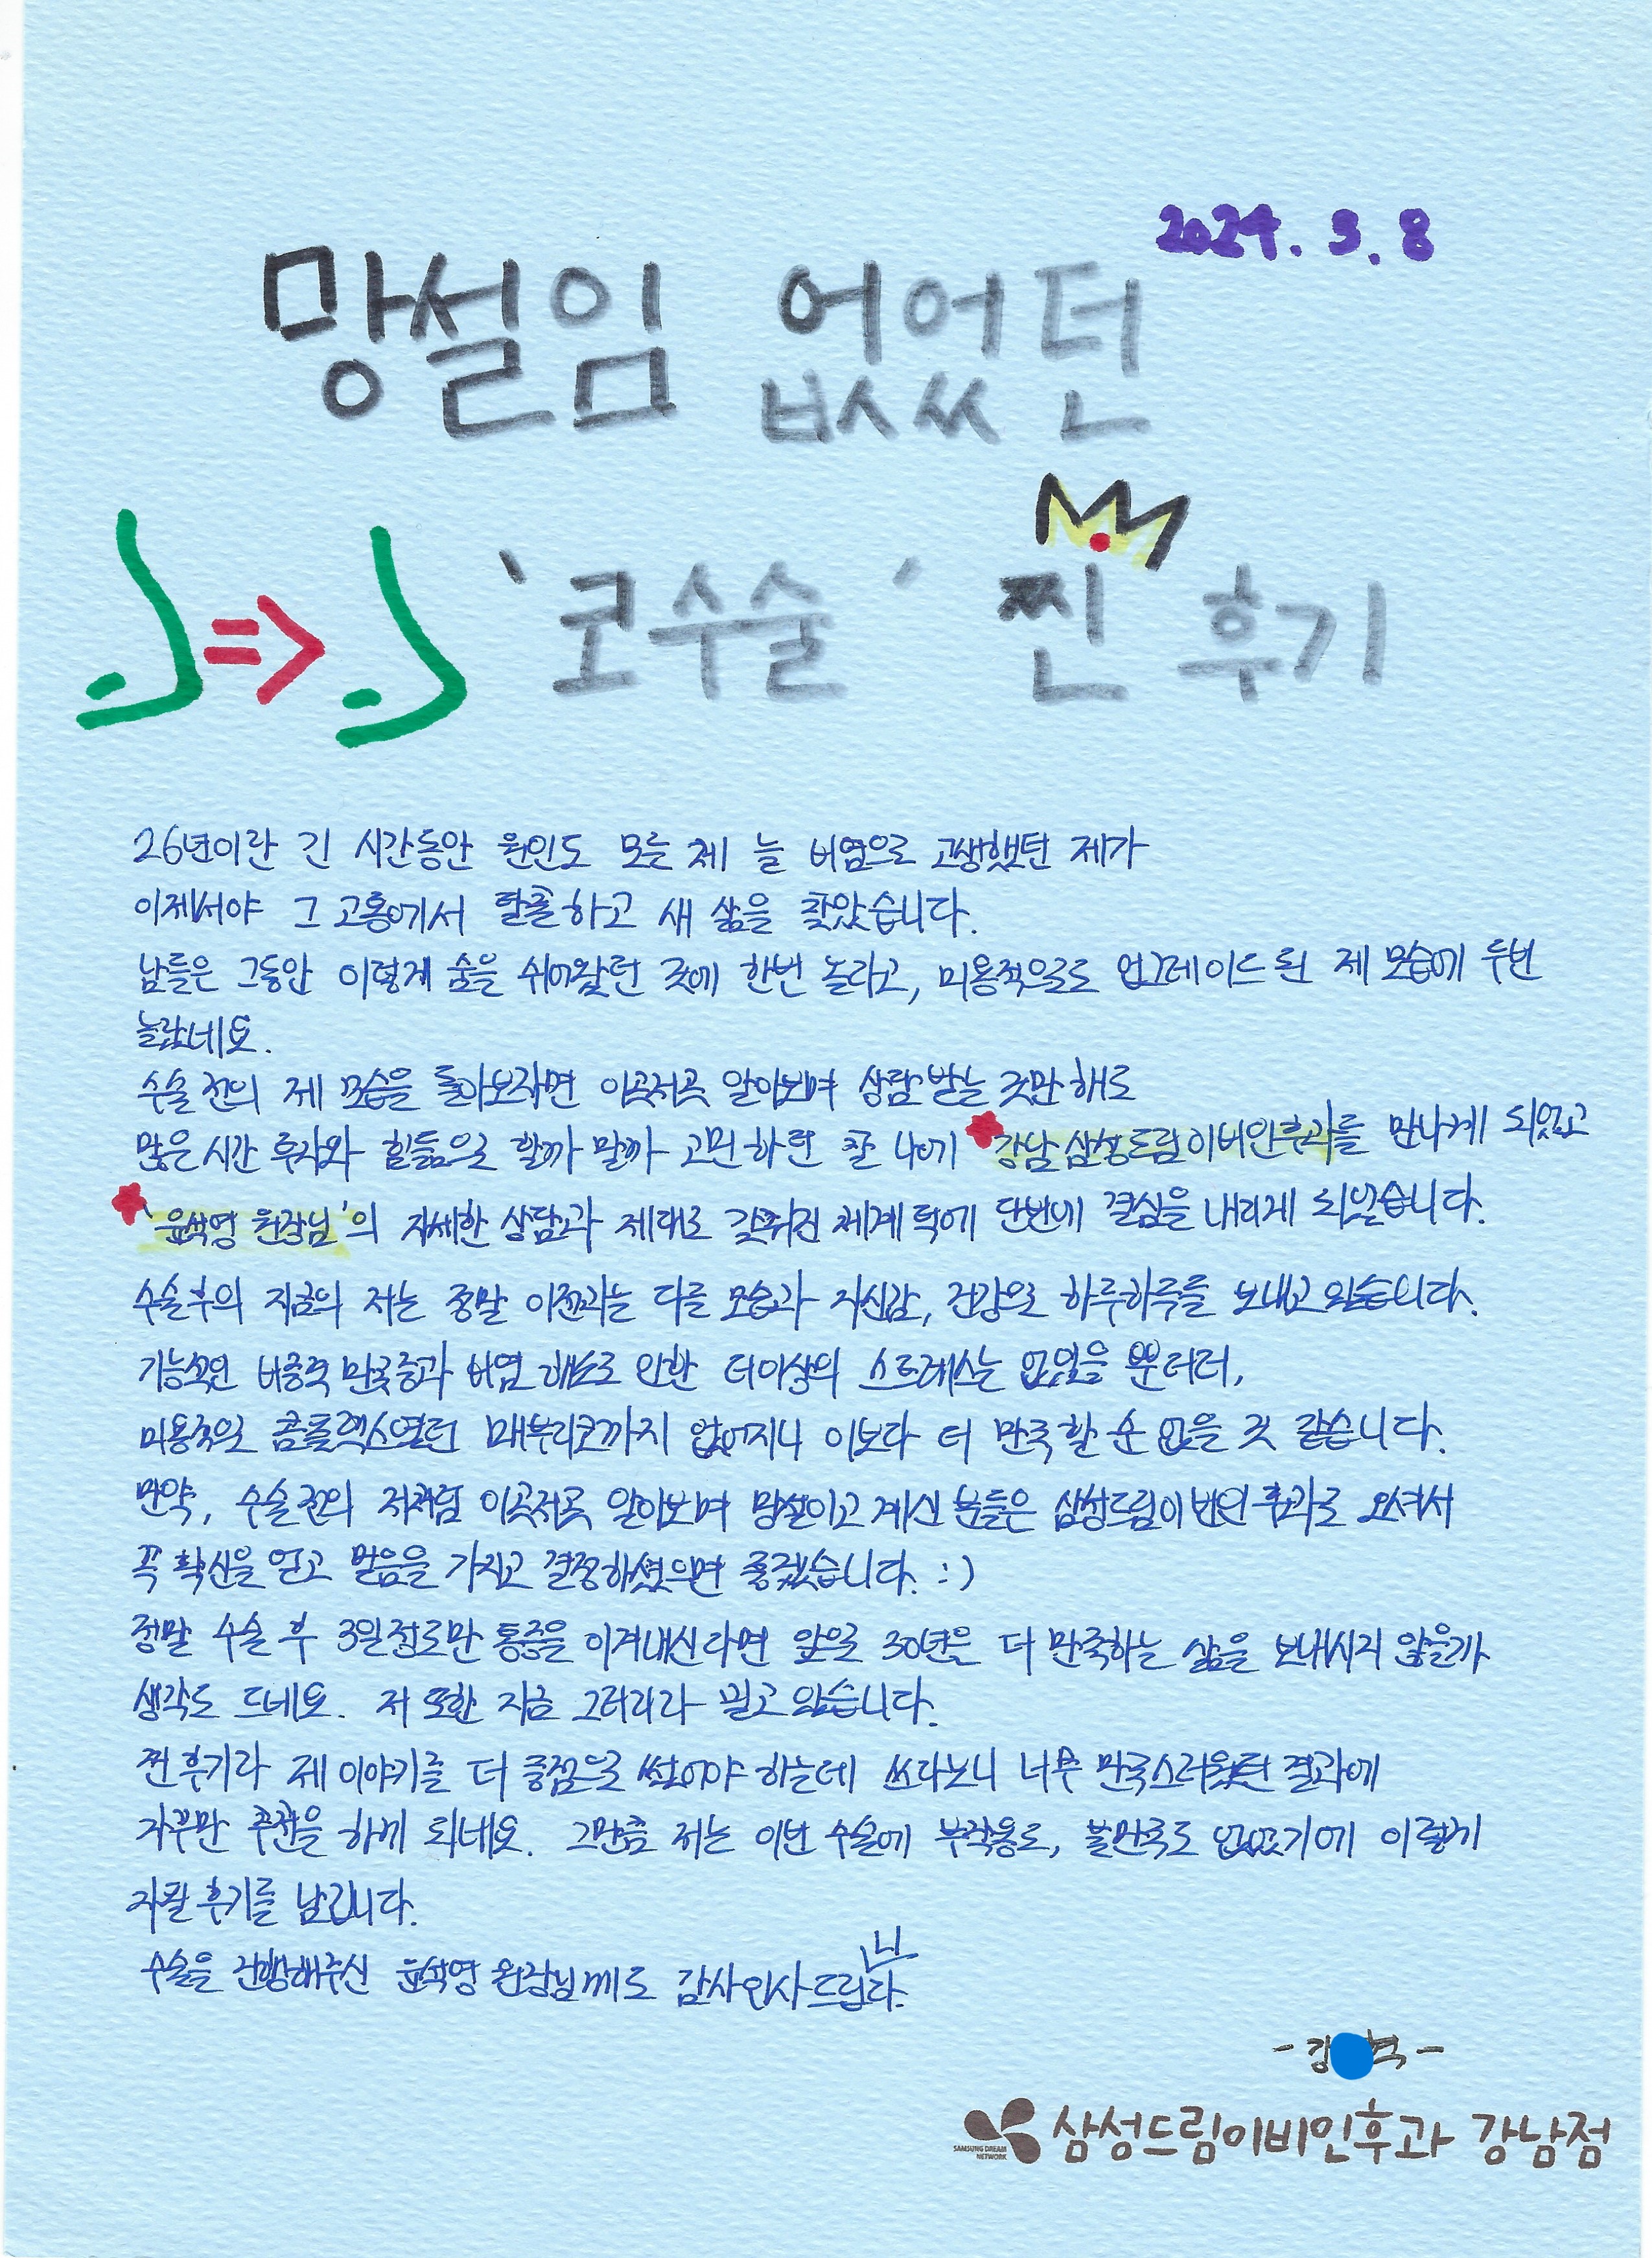 2024. 3. 8
망설임 없었던
'코수술' 찐 후기
26년이란 긴 시간동안 원인도 모른 채 늘 비염으로 고생했던 제가
이제서야 그 고통에서 탈출하고 새 삶을 찾았습니다.
남들은 그동안 이렇게 숨을 쉬어왔던 것에 한번 놀라고, 미용적으로도 업그레이드 된 제 모습에 두번
놀랐네요.
수술 전의 제 모습을 돌아보자면 이곳저곳 알아보며 상담 받는 것만 해도
많은 시간 투자와 힘듦으로 할까 말까 고민하던 찰나에 강남 삼성드림이비인후과를 만나게 되었고
'윤석영 원장님'의 자세한 상담과 제대로 갖춰진 체계 덕에 단번에 결심을 내리게 되었습니다.
수술 후의 지금의 저는 정말 이전과는 다른 모습과 자신감, 건강으로 하루하루를 보내고 있습니다.
기능적인 비중격 만곡증과 비염 해소로 인한 더이상의 스트레스는 없을 뿐더러,
미용적으로 콤플렉스였던 매부리코까지 없어지니 이보다 더 만족할 순 없을 것 같습니다.
만약, 수술 전의 저처럼 이곳저곳 알아보며 망설이고 계신 분들은 삼성드림이비인후과로 오셔서
꼭 확신을 얻고 믿음을 가지고 결정하셨으면 좋겠습니다. :)
정말 수술 후 3일정도만 통증을 이겨내신다면 앞으로 30년은 더 만족하는 삶을 보내시지 않을까
생각도 드네요. 저 또한 지금 그러리라 믿고 있습니다.
찐 후기라 제 이야기를 더 중점으로 썼어야 하는데 쓰다보니 너무 만족스러웠던 결과에
자꾸만 추천을 하게 되네요. 그만큼 저는 이번 수술에 부작용도, 불만족도 없었기에 이렇게
자필 후기를 남깁니다.
수술을 진행해주신 윤석영 원장님께도 감사인사드립니다.
- 강 혁 -
SAMSUNG DREAM NETWORK 삼성드림이비인후과 강남점